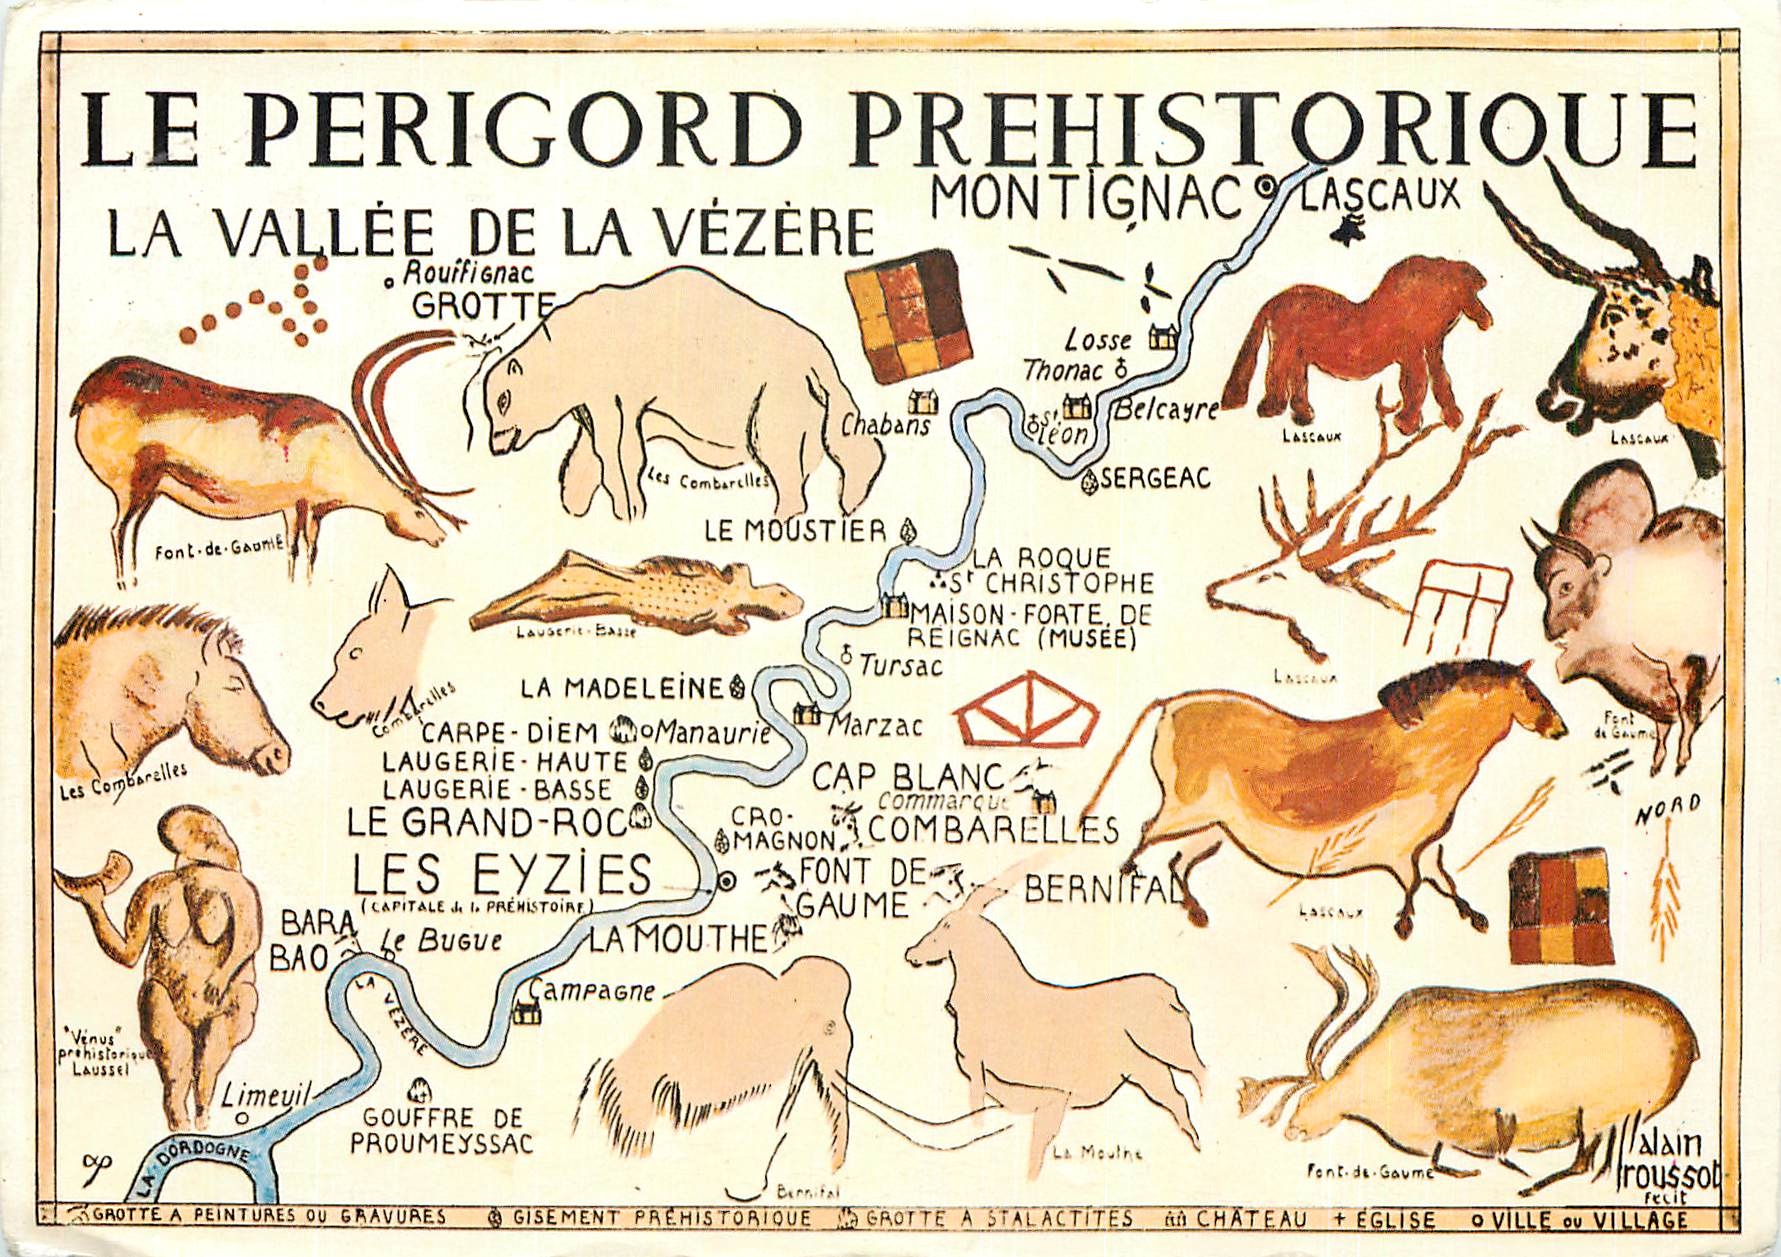 LE PERIGORD PREHISTORIQUE
LA VALLÉE DE LA VÉZÈRE
MONTIGNAC
LASCAUX
Rouffignac
GROTTE
Losse
Thonac
Chabans
St
Léon
Belcayre
SERGEAC
Lascaux
Lascaux
Les Combarelles
Font-de-Gaume
LE MOUSTIER
LA ROQUE
St CHRISTOPHE
MAISON-FORTE DE
REIGNAC (MUSÉE)
Laugerie-Basse
Tursac
Lascaux
LA MADELEINE
Combarelles
CARPE-DIEM
Manaurie
Marzac
Font
de Gaume
LAUGERIE-HAUTE
LAUGERIE-BASSE
LE GRAND-ROC
Les Combarelles
CAP BLANC
Commarque
COMBARELLES
CRO-
MAGNON
NORD
LES EYZIES
(CAPITALE de la PRÉHISTOIRE)
FONT DE
GAUME
BERNIFAL
Lascaux
BARA
BAO
Le Bugue
LA MOUTHE
LA VÉZÈRE
Campagne
"Vénus"
préhistorique
Laussel
Limeuil
GOUFFRE DE
PROUMEYSSAC
LA DORDOGNE
Bernifal
La Mouthe
Font-de-Gaume
alain
roussot
fecit
GROTTE A PEINTURES OU GRAVURES GISEMENT PRÉHISTORIQUE GROTTE A STALACTITES CHÂTEAU + EGLISE O VILLE ou VILLAGE